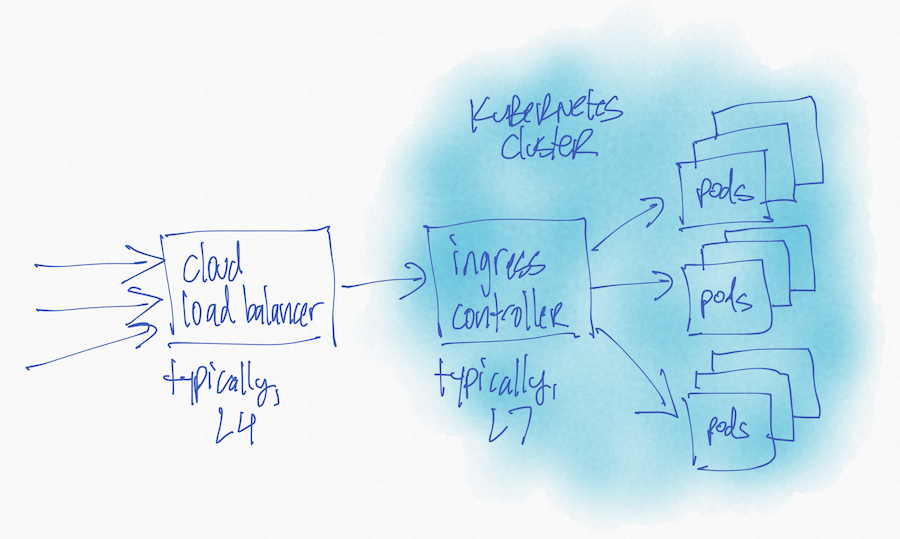 Kubernetes
cluster
cloud
load balancer
typically,
L4
ingress
controller
typically,
L7
pods
pods
pods